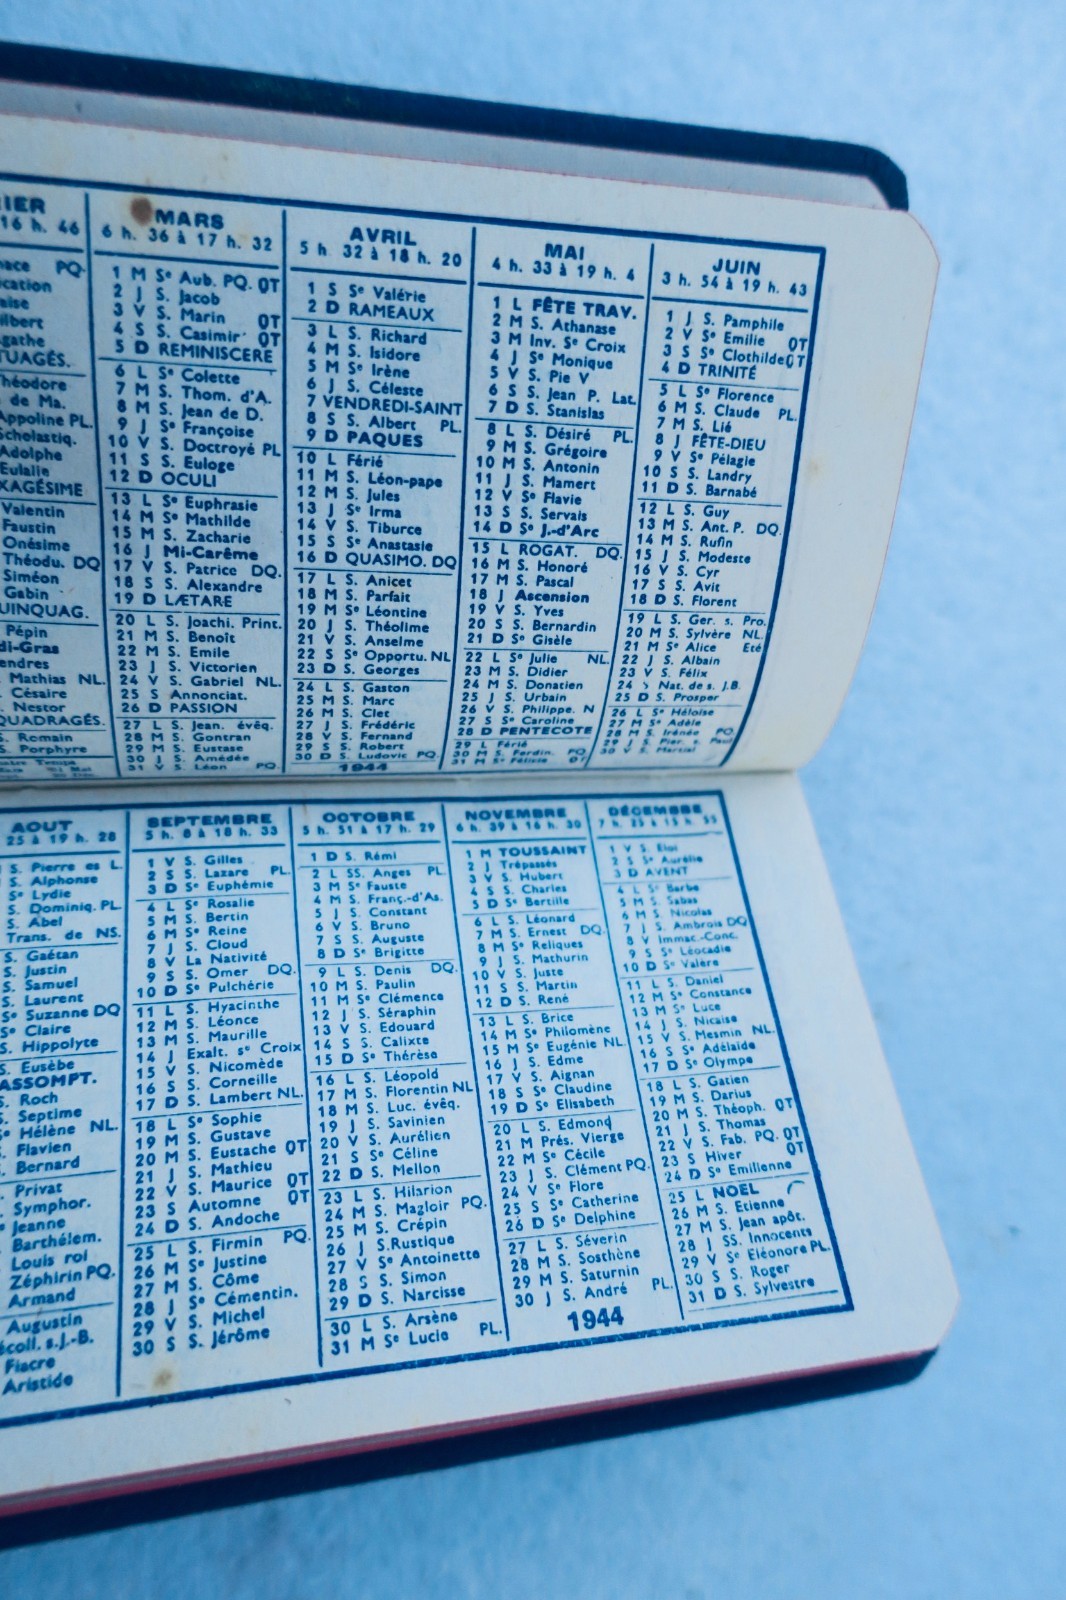 IER
16 h. 46
nace PQ.
cation
aise
ilbert
gathe
TUAGÉS.
héodore
de Ma.
Appoline PL.
Scholastiq.
Adolphe
Eulalie
XAGÉSIME
Valentin
Faustin
Onésime
Théodu. DQ
Siméon
Gabin
UINQUAG.
Pépin
di-Gras
endres
Mathias NL.
Césaire
Nestor
QUADRAGÉS.
S. Romain
S. Porphyre
MARS
6 h. 36 à 17 h. 32
1 M Se Aub. PQ. QT
2 J S. Jacob
3 V S. Marin QT
4 S S. Casimir QT
5 D REMINISCERE
6 L Se Colette
7 M S. Thom. d'A.
8 M S. Jean de D.
9 J Se Françoise
10 V S. Doctroyé PL
11 S S. Euloge
12 D OCULI
13 L Se Euphrasie
14 M Se Mathilde
15 M S. Zacharie
16 J Mi-Carême
17 V S. Patrice DQ.
18 S S. Alexandre
19 D LÆTARE
20 L S. Joachi. Print.
21 M S. Benoît
22 M S. Emile
23 J S. Victorien
24 V S. Gabriel NL.
25 S Annonciat.
26 D PASSION
27 L S. Jean. évêq.
28 M S. Gontran
29 M S. Eustase
30 J S. Amédée
31 V S. Léon PQ.
AVRIL
5 h 32 à 18 h. 20
1 S Se Valérie
2 D RAMEAUX
3 L S. Richard
4 M S. Isidore
5 M Se Irène
6 J S. Céleste
7 VENDREDI-SAINT
8 S S. Albert PL.
9 D PAQUES
10 L Férié
11 M S. Léon-pape
12 M S. Jules
13 J Se Irma
14 V S. Tiburce
15 S Se Anastasie
16 D QUASIMO. DQ
17 L S. Anicet
18 M S. Parfait
19 M Se Léontine
20 J S. Théolime
21 V S. Anselme
22 S Se Opportu. NL
23 D S. Georges
24 L S. Gaston
25 M S. Marc
26 M S. Clet
27 J S. Frédéric
28 V S. Fernand
29 S S. Robert
30 D S. Ludovic PQ.
1944
MAI
4 h. 33 à 19 h. 4
1 L FÊTE TRAV.
2 M S. Athanase
3 M Inv. Se Croix
4 J Se Monique
5 V S. Pie V
6 S S. Jean P. Lat.
7 D S. Stanislas
8 L S. Désiré PL.
9 M S. Grégoire
10 M S. Antonin
11 J S. Mamert
12 V Se Flavie
13 S S. Servais
14 D Se J.-d'Arc
15 L ROGAT. DQ.
16 M S. Honoré
17 M S. Pascal
18 J Ascension
19 V S. Yves
20 S S. Bernardin
21 D Se Gisèle
22 L Se Julie NL.
23 M S. Didier
24 M S. Donatien
25 J S. Urbain
26 V S. Philippe. N
27 S Se Caroline
28 D PENTECOTE
29 L Férié
30 M S. Ferdin. PQ
31 M Se Félicie QT
JUIN
3 h. 54 à 19 h. 43
1 J S. Pamphile
2 V Se Emilie QT
3 S Se Clothilde QT
4 D TRINITÉ
5 L Se Florence
6 M S. Claude PL.
7 M S. Lié
8 J FÊTE-DIEU
9 V Se Pélagie
10 S S. Landry
11 D S. Barnabé
12 L S. Guy
13 M S. Ant. P. DQ.
14 M S. Rufin
15 J S. Modeste
16 V S. Cyr
17 S S. Avit
18 D S. Florent
19 L S. Ger. s. Pro.
20 M S. Sylvère NL.
21 M Se Alice Eté
22 J S. Albain
23 V S. Félix
24 S Nat. de s. J.B.
25 D S. Prosper
26 L Se Héloïse
27 M Se Adèle
28 M S. Irénée PQ
29 J S. Pier. s Paul
30 V S. Martial
AOUT
25 à 19 h. 28
S. Pierre es L.
S. Alphonse
Se Lydie
S. Dominiq. PL.
S. Abel
Trans. de NS.
S. Gaétan
S. Justin
S. Samuel
S. Laurent
Se Suzanne DQ
Se Claire
S. Hippolyte
S. Eusèbe
ASSOMPT.
S. Roch
S. Septime
Se Hélène NL.
S. Flavien
S. Bernard
Privat
Symphor.
Jeanne
Barthélem.
Louis roi
Zéphirin PQ.
Armand
Augustin
écoll. s.J.-B.
Fiacre
Aristide
SEPTEMBRE
5 h. 8 à 18 h. 33
1 V S. Gilles
2 S S. Lazare PL.
3 D Se Euphémie
4 L Se Rosalie
5 M S. Bertin
6 M Se Reine
7 J S. Cloud
8 V La Nativité
9 S S. Omer DQ.
10 D Se Pulchérie
11 L S. Hyacinthe
12 M S. Léonce
13 M S. Maurille
14 J Exalt. se Croix
15 V S. Nicomède
16 S S. Corneille
17 D S. Lambert NL.
18 L Se Sophie
19 M S. Gustave
20 M S. Eustache QT
21 J S. Mathieu
22 V S. Maurice QT
23 S Automne QT
24 D S. Andoche
25 L S. Firmin PQ.
26 M Se Justine
27 M S. Côme
28 J Se Cémentin.
29 V S. Michel
30 S S. Jérôme
OCTOBRE
5 h. 51 à 17 h. 29
1 D S. Rémi
2 L SS. Anges PL.
3 M Se Fauste
4 M S. Franç.-d'As.
5 J S. Constant
6 V S. Bruno
7 S S. Auguste
8 D Se Brigitte
9 L S. Denis DQ.
10 M S. Paulin
11 M Se Clémence
12 J S. Séraphin
13 V S. Edouard
14 S S. Calixte
15 D Se Thérèse
16 L S. Léopold
17 M S. Florentin NL
18 M S. Luc. évêq.
19 J S. Savinien
20 V S. Aurélien
21 S Se Céline
22 D S. Mellon
23 L S. Hilarion
24 M S. Magloir PQ.
25 M S. Crépin
26 J S.Rustique
27 V Se Antoinette
28 S S. Simon
29 D S. Narcisse
30 L S. Arsène
31 M Se Lucie PL.
NOVEMBRE
6 h. 39 à 16 h. 30
1 M TOUSSAINT
2 J Trépassés
3 V S. Hubert
4 S S. Charles
5 D Se Bertille
6 L S. Léonard
7 M S. Ernest DQ.
8 M Se Reliques
9 J S. Mathurin
10 V S. Juste
11 S S. Martin
12 D S. René
13 L S. Brice
14 M Se Philomène
15 M Se Eugénie NL.
16 J S. Edme
17 V S. Aignan
18 S Se Claudine
19 D Se Elisabeth
20 L S. Edmond
21 M Prés. Vierge
22 M Se Cécile
23 J S. Clément PQ.
24 V Se Flore
25 S Se Catherine
26 D Se Delphine
27 L S. Séverin
28 M S. Sosthène
29 M S. Saturnin
30 J S. André PL.
1944
DÉCEMBRE
1 V S. Eloi
2 S Se Aurélie
3 D AVENT
4 L Se Barbe
5 M S. Sabas
6 M S. Nicolas
7 J S. Ambrois DQ
8 V Immac.-Conc.
9 S Se Léocadie
10 D Se Valère
11 L S. Daniel
12 M Se Constance
13 M Se Luce
14 J S. Nicaise
15 V S. Mesmin NL.
16 S Se Adélaïde
17 D Se Olympe
18 L S. Gatien
19 M S. Darius
20 M S. Théoph. QT
21 J S. Thomas
22 V S. Fab. PQ. QT
23 S Hiver QT
24 D Se Emilienne
25 L NOEL
26 M S. Etienne
27 M S. Jean apôt.
28 J SS. Innocents
29 V Se Eléonore PL.
30 S S. Roger
31 D S. Sylvestre